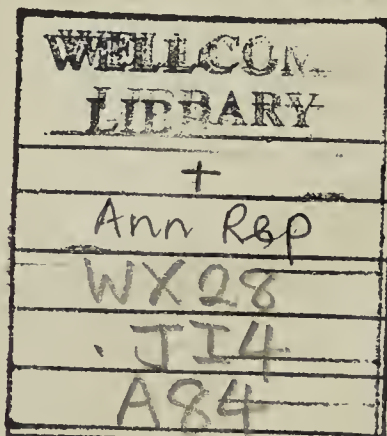 WELLCOM
LIBRARY
+
Ann Rep
WX28
.JI4
A84